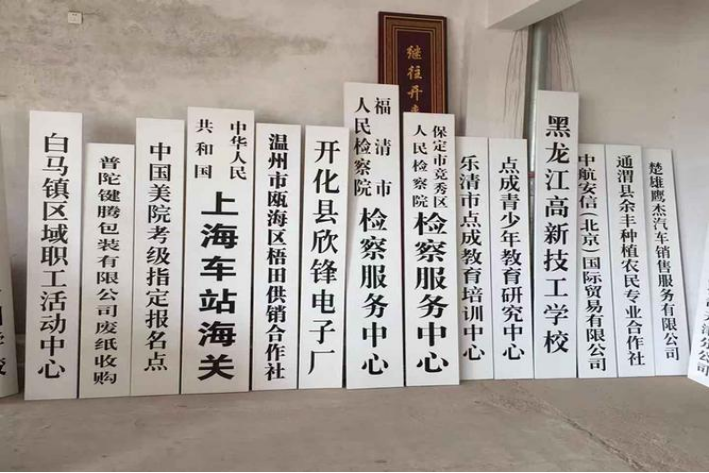 继往开来
白马镇区域职工活动中心
普陀键腾包装有限公司废纸收购
中国美院考级指定报名点
中华人民
共和国
上海车站海关
温州市瓯海区梧田供销合作社
开化县欣锋电子厂
福清市
人民检察院
检察服务中心
保定市竞秀区
人民检察院
检察服务中心
乐清市点成教育培训中心
点成青少年教育研究中心
黑龙江高新技工学校
中航安信(北京)国际贸易有限公司
通渭县余丰种植农民专业合作社
楚雄鹰杰汽车销售服务有限公司